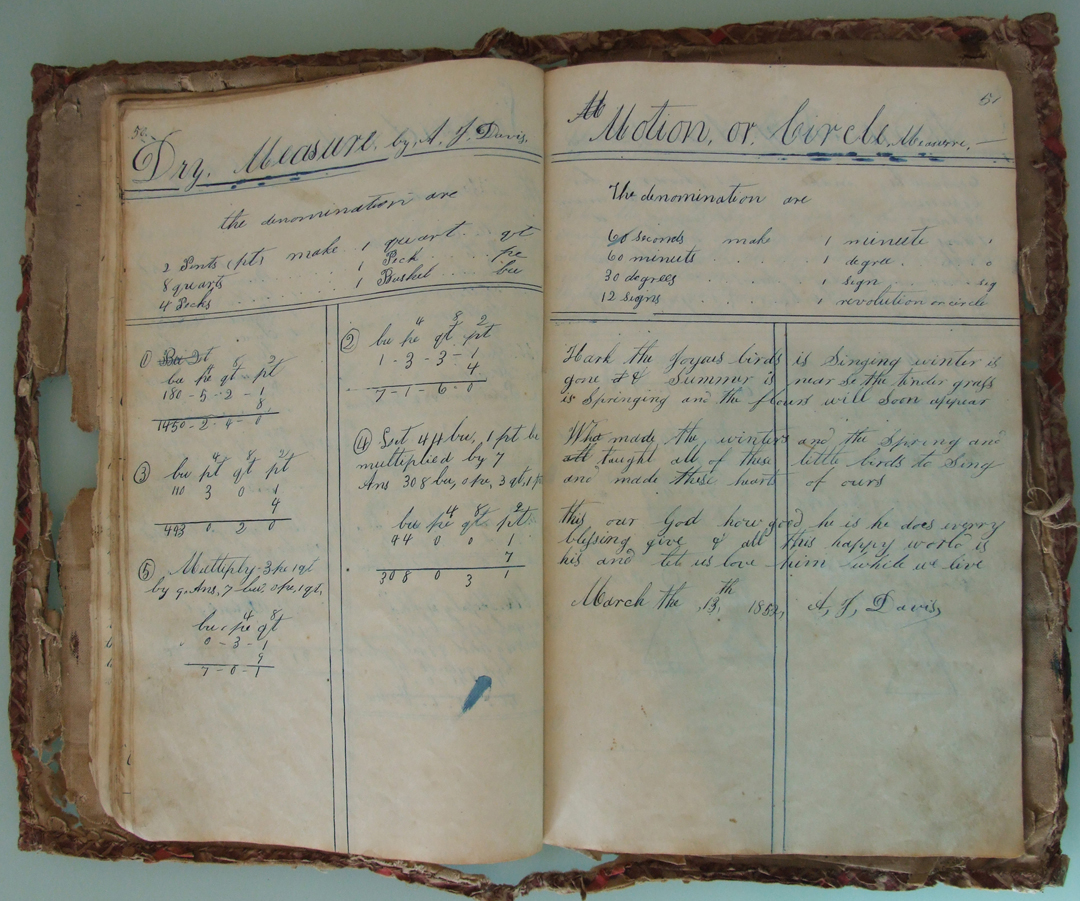 50.
Dry, Measure, by, A, J, Davis,
the denomination are
2 Pints (pt) make 1 quart. qt
8 quarts . . . . 1 Peck . . . pe
4 Pecks . . . . 1 Bushel . . . bu
① 
4 8 2
bu pe qt pt
180-5-2-1
8
1450-2-4-0
③ 4 8 2
bu pt qt pt
110 3 0 1
4
493 0 2 0
⑤ Multeply-3 pe 1 qt
by 9 Ans, 7 bu, 0 pe, 1 qt,
4 8
bu pe qt
0-3-1
9
7-0-1
② 4 8 2
bu pe qt pt
1-3-3-1
4
7-1-6-0
④ Set 44 bu, 1 pt be
multeplied by 7
Ans 308 bu, 0 pe, 3 qt, 1 p
4 8 2
bu pe qt pt
44 0 0 1
7
308 0 3 1
51
Mo
Motion, or, Circle, Measure,
The denomination are
60 Seconds make 1 mineete '
60 mineets . . . 1 degree . o
30 degrees . . . 1 sign . . sig
12 signs . . . 1 revolution or circle
Hark the Joyous birds is Singing winter is
gone & Summer is near se the tinder grass
is Springing and the flours will Soon appear
What made the winters and the Spring and
taught all of these little birds to Sing
and made these hearts of ours
this our God how good he is he does everry
blessing give & all this happy world is
his and let us love him while we live
March the 13th 1852, A, J, Davis,